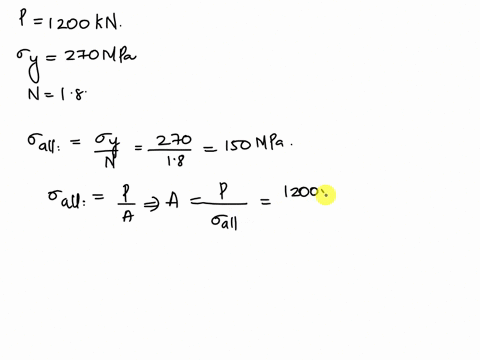 P = 1200 kN.
σy = 270 MPa
N = 1.8.
σall: = σy/N = 270/1.8 = 150 MPa.
σall: = P/A ⇒ A = P/σall = 1200